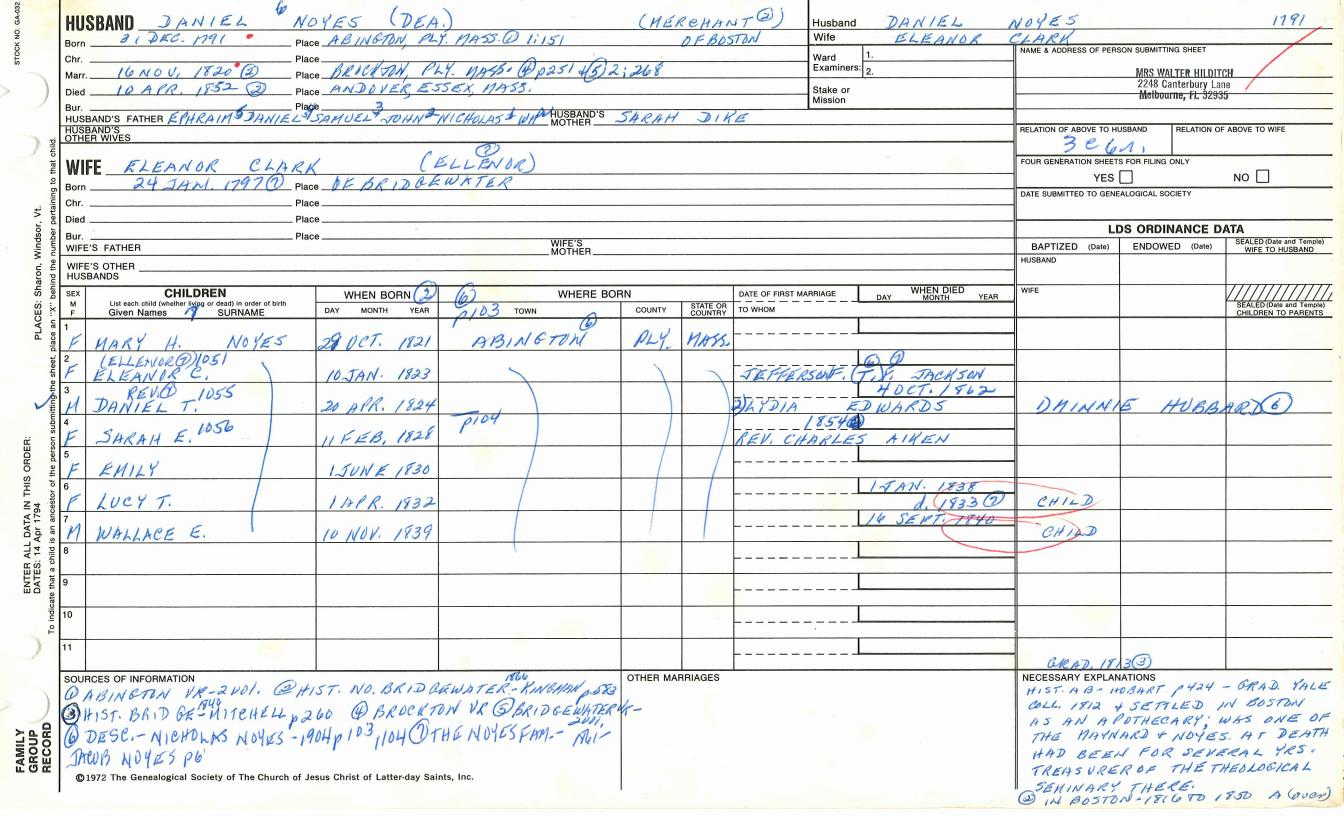 STOCK NO. GA-032
HUSBAND DANIEL 6 NOYES (DEA.) (MERCHANT ②)
Born 31 DEC. 1791 Place ABINGTON, PLY. MASS. ① 1:151 OF BOSTON
Chr. Place
Marr. 16 NOV. 1820 ② Place BROCKTON, PLY. MASS. ④ p251 & ⑤ 2:268
Died 10 APR. 1852 ② Place ANDOVER, ESSEX, MASS.
Bur. Place
HUSBAND'S FATHER EPHRAIM 5 DANIEL 4 SAMUEL 3 JOHN 2 NICHOLAS 1 WM HUSBAND'S MOTHER SARAH DIKE
HUSBAND'S OTHER WIVES
Husband DANIEL NOYES 1791
Wife ELEANOR CLARK
Ward Examiners: 1.
2.
Stake or Mission
NAME & ADDRESS OF PERSON SUBMITTING SHEET
MRS WALTER HILDITCH
2248 Canterbury Lane
Melbourne, FL 32935
RELATION OF ABOVE TO HUSBAND RELATION OF ABOVE TO WIFE
FOUR GENERATION SHEETS FOR FILING ONLY
YES NO
DATE SUBMITTED TO GENEALOGICAL SOCIETY
WIFE ELEANOR CLARK (ELLENOR) ⑦
Born 24 JAN. 1797 ⑦ Place OF BRIDGEWATER
Chr. Place
Died Place
Bur. Place
WIFE'S FATHER WIFE'S MOTHER
WIFE'S OTHER HUSBANDS
LDS ORDINANCE DATA
BAPTIZED (Date) ENDOWED (Date) SEALED (Date and Temple) WIFE TO HUSBAND
HUSBAND
WIFE
SEALED (Date and Temple) CHILDREN TO PARENTS
SEX M F CHILDREN List each child (whether living or dead) in order of birth Given Names 7 SURNAME
WHEN BORN ② DAY MONTH YEAR
⑥ p103 WHERE BORN TOWN COUNTY STATE OR COUNTRY
DATE OF FIRST MARRIAGE TO WHOM
WHEN DIED DAY MONTH YEAR
1 F MARY H. NOYES 29 OCT. 1821 ABINGTON ⑥ PLY. MASS.
2 (ELLENOR ⑦) 1051
F ELEANOR C. 10 JAN. 1823 JEFFERSON F. (T.F. ⑥ ⑦ JACKSON
3 REV. ⑦ 1055 4 OCT. 1862
M DANIEL T. 20 APR. 1824 2) LYDIA EDWARDS 1) MINNIE HUBBARD ⑥
4 p104 1854
F SARAH E. 1056 11 FEB. 1828 REV. CHARLES AIKEN
5 F EMILY 1 JUNE 1830
6 1 JAN. 1838
F LUCY T. 1 APR. 1832 d. 1833 ⑦ CHILD
7 16 SEPT. 1840
M WALLACE E. 10 NOV. 1839 CHILD
8
9
10
11
SOURCES OF INFORMATION
① ABINGTON VR-2001. ② HIST. NO. BRIDGEWATER-1866 KINGMAN p583
③ HIST. BRIDGE-1840 MITCHELL p260 ④ BROCKTON VR ⑤ BRIDGEWATER VR-2001,
⑥ DESC.-NICHOLAS NOYES-1904 p103, 1104 ⑦ THE NOYES FAM.-1861-
JACOB NOYES p6
©1972 The Genealogical Society of The Church of Jesus Christ of Latter-day Saints, Inc.
OTHER MARRIAGES
GRAD. 1813 ③
NECESSARY EXPLANATIONS
HIST. AB-HOBART p424 - GRAD. YALE
COLL. 1812 & SETTLED IN BOSTON
AS AN APOTHECARY; WAS ONE OF
THE MAYNARD & NOYES. AT DEATH
HAD BEEN FOR SEVERAL YRS.
TREASURER OF THE THEOLOGICAL
SEMINARY THERE.
② IN BOSTON-1816 TO 1850 A (over)
FAMILY GROUP RECORD
ENTER ALL DATA IN THIS ORDER:
DATES: 14 Apr 1794
PLACES: Sharon, Windsor, Vt.
To indicate that a child is an ancestor of the person submitting the sheet, place an "X" behind the number pertaining to that child.